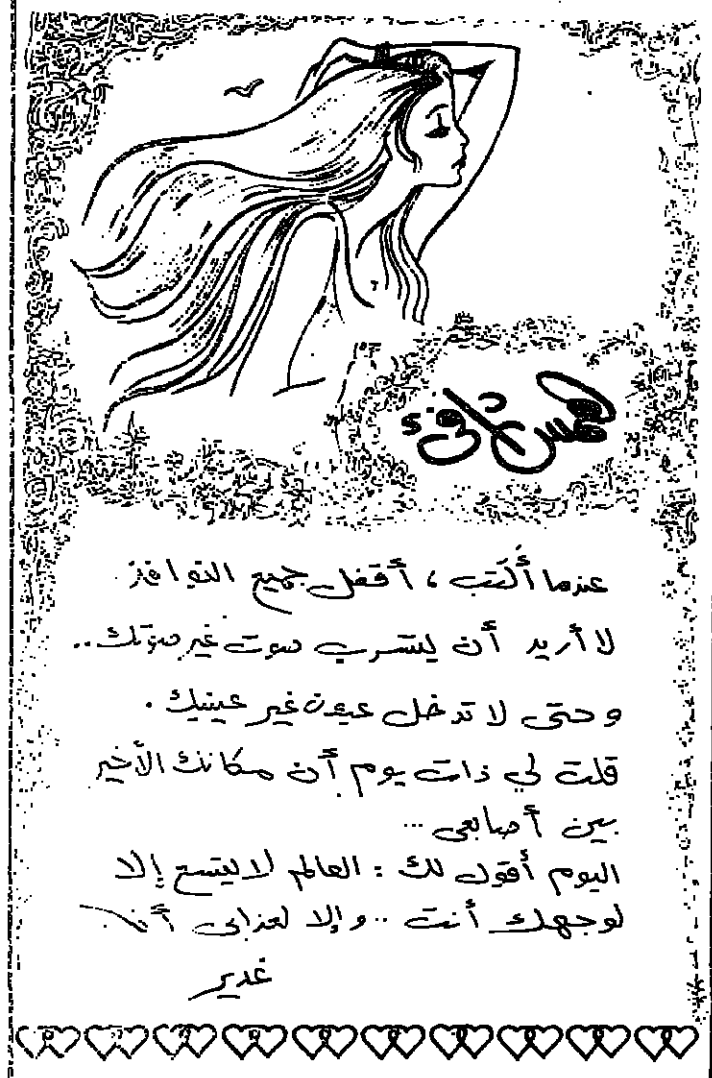 همس دافئ
عندما أكتب ، أقفل جميع النوافذ
لا أريد أن يتسرب صوت غير صوتك ..
وحتى لا تدخل عيون غير عينيك .
قلت لي ذات يوم أن مكانك الأخير
بين أصابعي ...
اليوم أقول لك : العالم لا يتسع إلا
لوجهك أنت .. وإلا لعذابي أنا
غدير